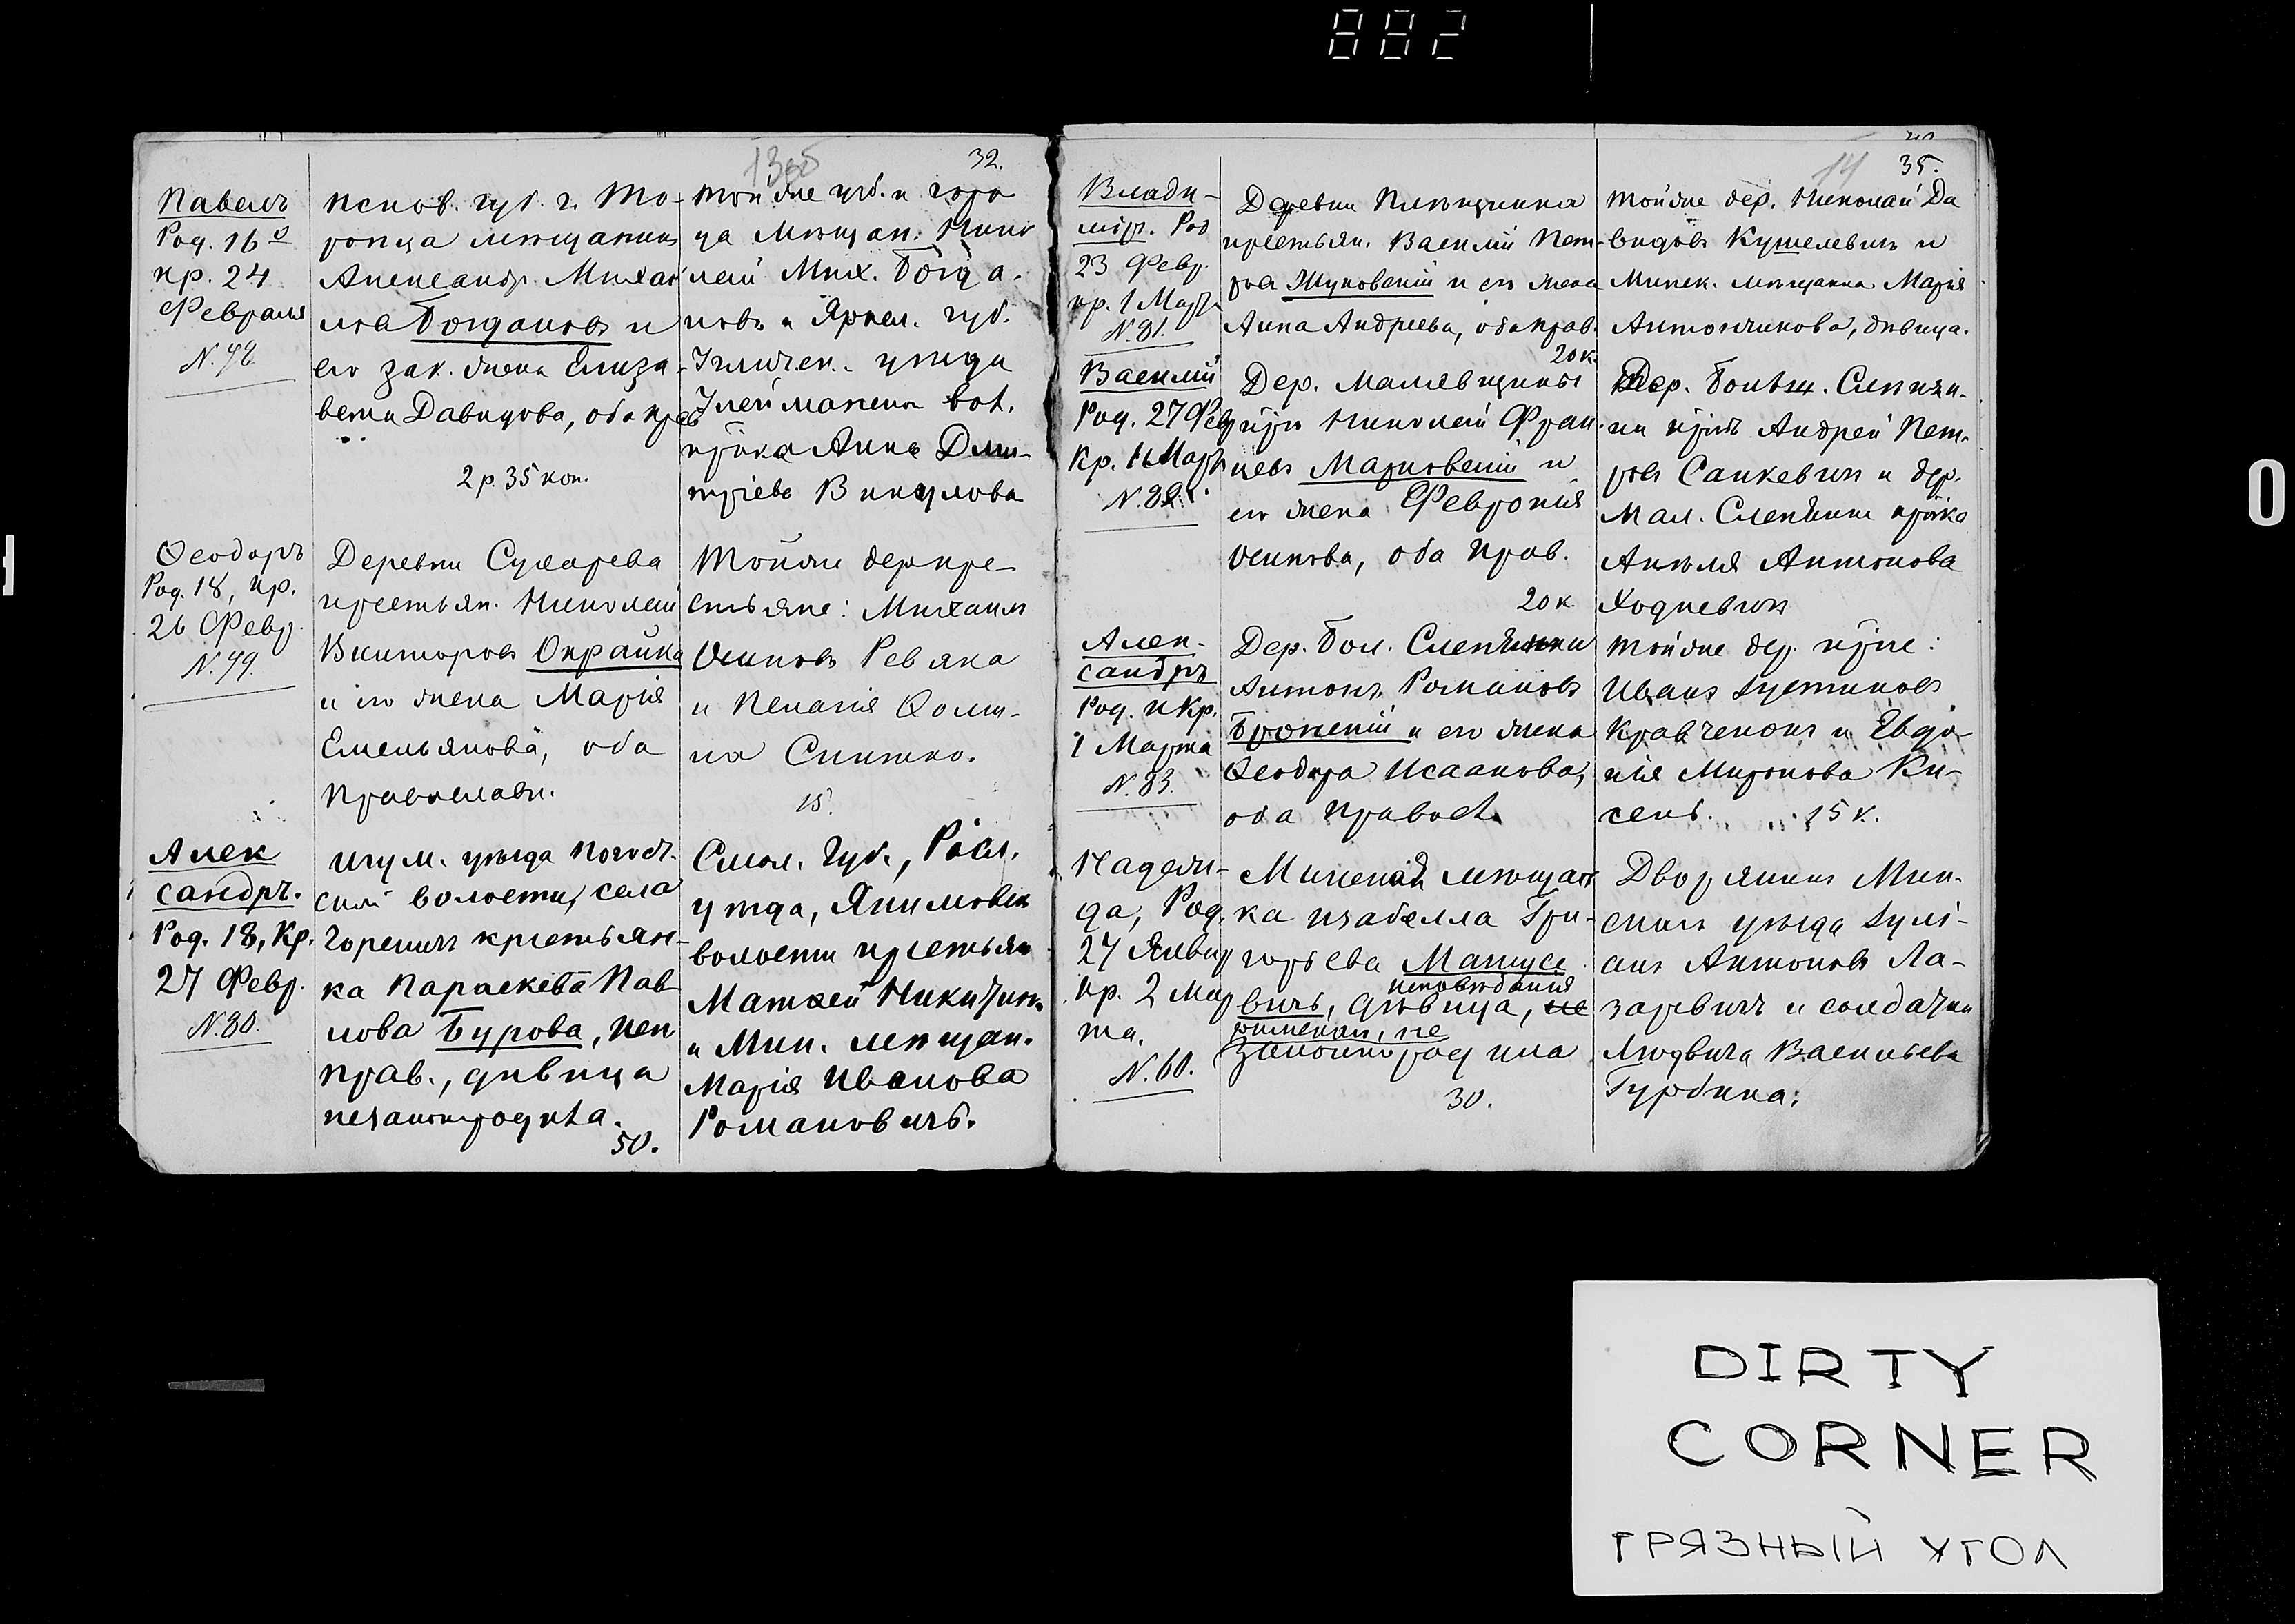 882
13об
32.
Павелъ
Род. 16о
кр. 24
Февраля
N. 78
Псков. губ. г. То-
ропца мѣщанинъ
Александр. Михай
лов Богдановъ и
его зак. жена Елиза-
вета Давидова, оба прав
2 р. 35 коп.
той же губ. и горо
да Мѣщан. Нико
лай Мих. Богда-
новъ и Яросл. губ.
уѣзда
вол.
кр͠ка Анна Дми-
тріева Викулова
Ѳеодоръ
Род. 18, кр.
26 Февр.
N. 79.
Деревни Сухарева
крестьян. Николай
Викторовъ Окрайка
и его жена Марія
Емельянова, оба
Православн.
Той же дер кре-
стьяне: Михаилъ
Осиповъ Ревяка
и Пелагія Ѳоми-
на Снитко.
15.
Алек
сандръ.
Род. 18, Кр.
27 Февр.
N. 80.
Игум. уѣзда Погост.
ской волости, села
Горелич крестьян-
ка Параскева Пав-
лова Бурова, исп
прав., дѣвица
незаконорожд.
50.
Смол. Губ., Росл.
уѣзда, Якимовск
волости крестьян
Матѳей Никитинъ
и Мин. мѣщан.
Марія Иванова
Романовичъ.
14
35.
Влади-
міръ. Род
23 Февр.
кр. 1 Март
N. 81.
Деревни
крестьян. Василій Пет-
ров Жуковскій и его жена
Анна Андреева, оба прав.
20 к.
той же дер. Николай Да
видовъ Кушелевичъ и
Минск. мѣщанка Марія
Антончикова, дѣвица.
Василій
Род. 27 Фев
Кр. 1 Март
N. 82.
Дер. Малявщины
кр͠нъ Николай Фран-
цевъ Марковскій и
его жена Февронія
Осипова, оба Прав.
20 к.
Дер. Больш. Слепян-
ки кр͠нъ Андрей Пет-
ровъ Санкевичъ и дер.
Мал. Слепянки кр͠нка
Анѣля Антонова
Ходкевичъ
Алек-
сандръ
Род. и Кр.
1 Марта
N. 83.
Дер. Бол. Слепянки
Антонъ Романовъ
Бронскій и его жена
Ѳеодора Исаакова,
оба Правосл.
Той же дер. кр͠не:
Иванъ Iустиновъ
Кравченокъ и Евдо-
кія Миронова Ки-
сель. 15 к.
Надеж-
да, Род.
27 Январ
кр. 2 Мар
та.
N. 60.
Минская мѣщан
ка Изабелла Гри-
горьева Матусе
исповѣданія
вичъ, дѣвица, не
римскаго, не
законно родила
30.
Дворянинъ Мин-
скаго уѣзда Iулі-
анъ Антоновъ Ла-
заревичъ и солдатка
Людвига Васильева
Гурбина.
0
DIRTY
CORNER
ГРЯЗНЫЙ УГОЛ